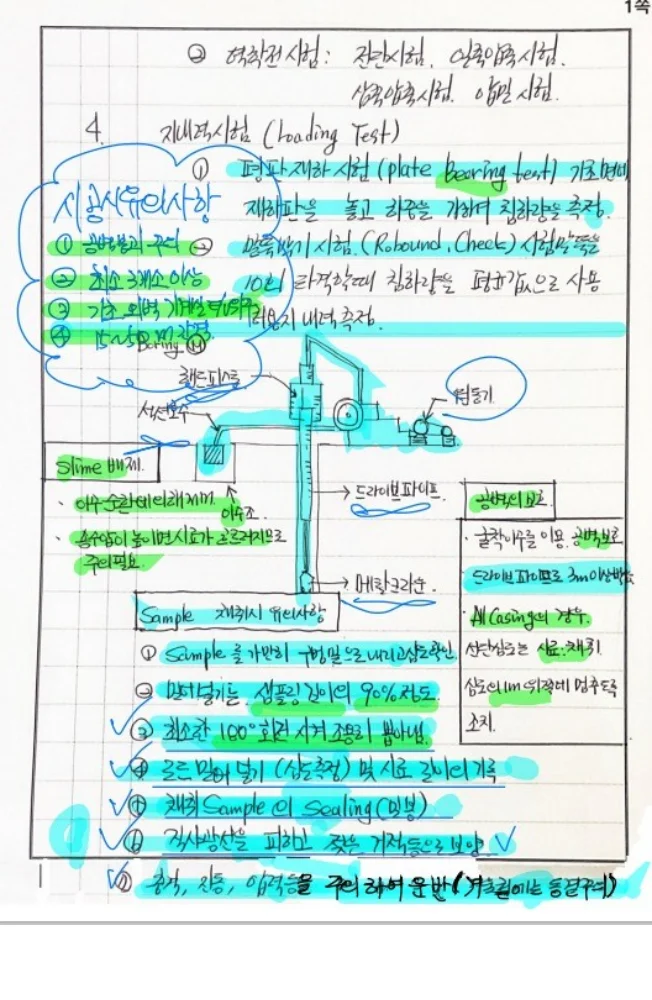 1쪽
② 역학적 시험: 전단시험. 일축압축시험.
삼축압축시험. 압밀시험.
4. 지내력시험 (Loading Test)
① 평판재하시험 (plate bearing test) 기초면에
재하판을 놓고 하중을 가하여 침하량을 측정.
② 말뚝박기시험. (Rebound. Check) 시험말뚝을
10회 타격할때 침하량을 평균값으로 사용
지내력측정.
시공시유의사항
① 공벽붕괴주의
② 최소 3개소이상
③ 기초 외벽
④ 15~
Boring
핸드피스톤
펌동기
Slime 배제.
· 이수순환에의해제거.
· 흡수압이 높이면시료가 므로
주의필요.
이수조
→ 드라이브파이프.
→ 메탈크라운.
공벽의보호.
· 굴착이수를 이용. 공벽보호
· 드라이브파이프로 3m이상박음
· Al Casing의 경우.
심도는 시료채취.
심도의 1m 위쪽에 멈추도록
조치.
Sample 채취시 유의사항
① Sample를 가만히 구멍밑으로 내리고심도확인
② 밀어넣기는. 샘플링길이의 90%정도.
③ 최소한 180° 회전시켜 조용히 뽑아냄.
④ 로드 밀어넣기 (심도측정) 및 시료 길이의기록
채취Sample의 Sealing(밀봉)
⑥ 직사광선을 피하고 젖은 거적등으로보양
⑦ 충격, 진동, 압력등을 주의하여운반(겨울철에는 동결주의)